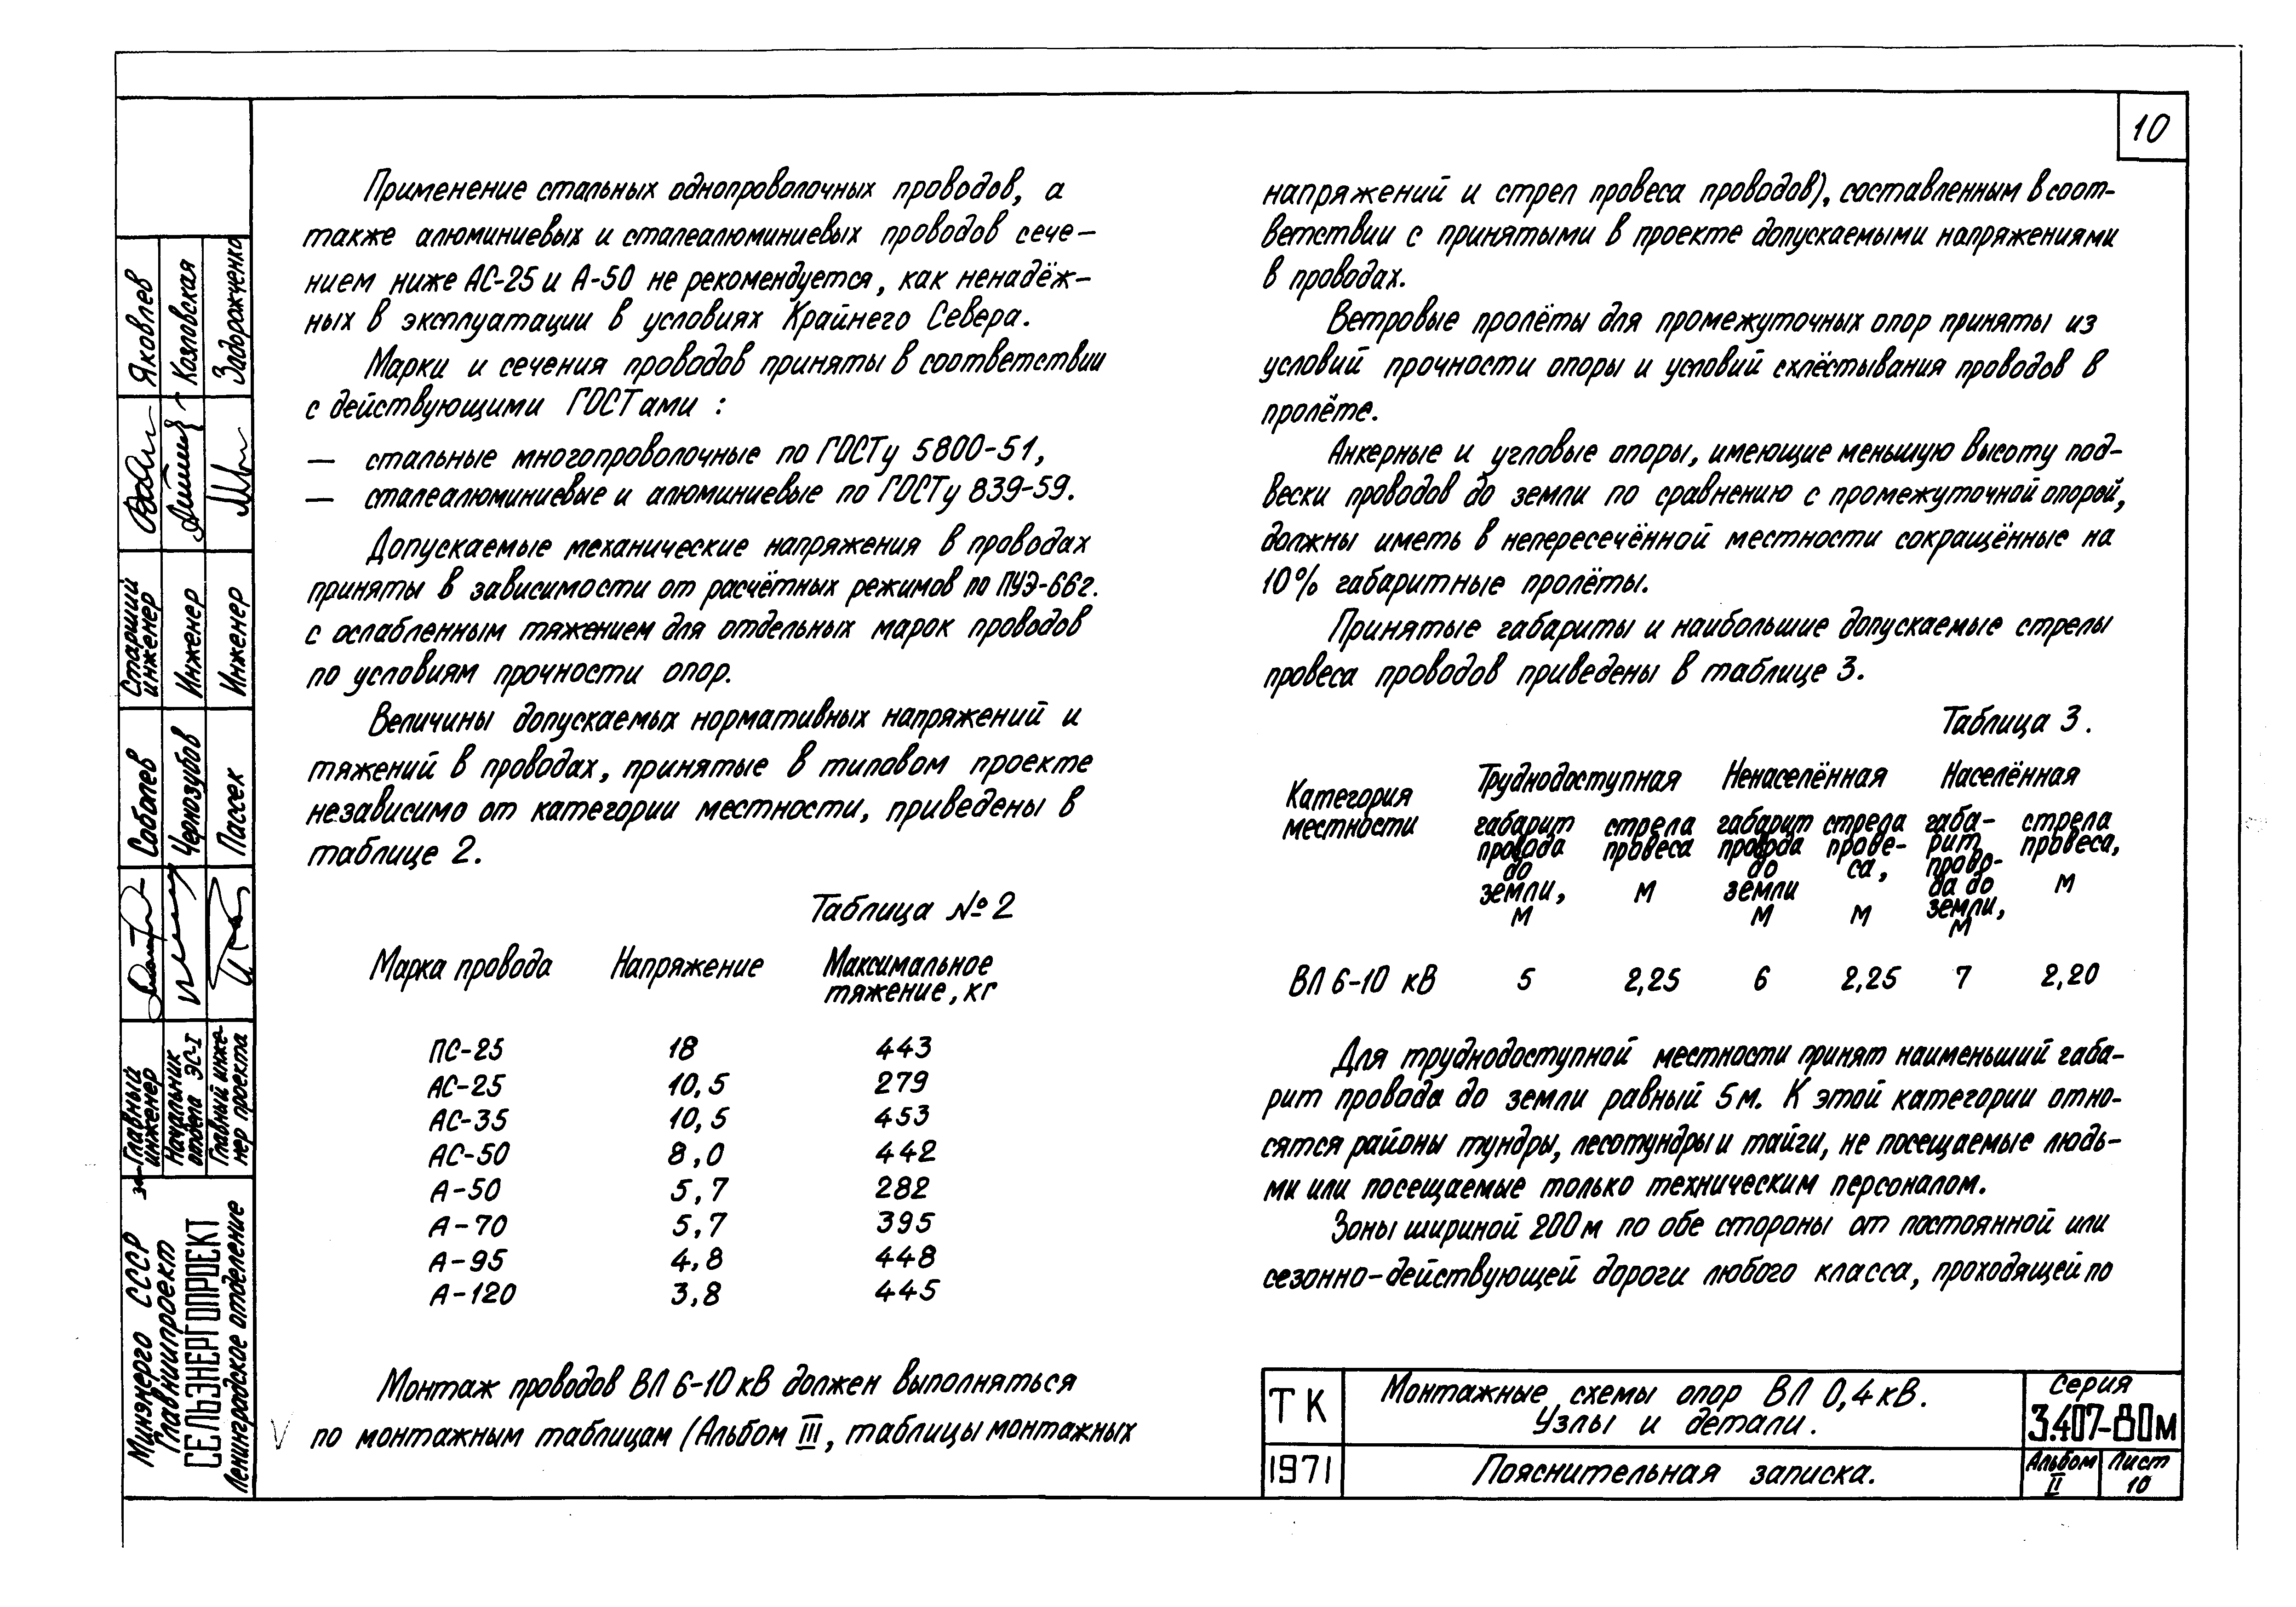 10
Применение стальных однопроволочных проводов, а
также алюминиевых и сталеалюминиевых проводов сече-
нием ниже АС-25 и А-50 не рекомендуется, как ненадёж-
ных в эксплуатации в условиях Крайнего Севера.
Марки и сечения проводов приняты в соответствии
с действующими ГОСТами :
— стальные многопроволочные по ГОСТу 5800-51,
— сталеалюминиевые и алюминиевые по ГОСТу 839-59.
Допускаемые механические напряжения в проводах
приняты в зависимости от расчётных режимов по ПУЭ-66г.
с ослабленным тяжением для отдельных марок проводов
по условиям прочности опор.
Величины допускаемых нормативных напряжений и
тяжений в проводах, принятые в типовом проекте
независимо от категории местности, приведены в
таблице 2.
Таблица №2
Марка провода Напряжение Максимальное
тяжение, кг
ПС-25 18 443
АС-25 10,5 279
АС-35 10,5 453
АС-50 8,0 442
А-50 5,7 282
А-70 5,7 395
А-95 4,8 448
А-120 3,8 445
Монтаж проводов ВЛ 6-10 кВ должен выполняться
по монтажным таблицам (Альбом III, таблицы монтажных
напряжений и стрел провеса проводов), составленным в соот-
ветствии с принятыми в проекте допускаемыми напряжениями
в проводах.
Ветровые пролёты для промежуточных опор приняты из
условий прочности опоры и условий схлёстывания проводов в
пролёте.
Анкерные и угловые опоры, имеющие меньшую высоту под-
вески проводов до земли по сравнению с промежуточной опорой,
должны иметь в непересечённой местности сокращённые на
10% габаритные пролёты.
Принятые габариты и наибольшие допускаемые стрелы
провеса проводов приведены в таблице 3.
Таблица 3.
Категория Труднодоступная Ненаселённая Населённая
местности габарит стрела габарит стрела габа- стрела
провода провеса провода прове- рит провеса,
до до са, прово-
земли, м земли да до м
м м м земли,
м
ВЛ 6-10 кВ 5 2,25 6 2,25 7 2,20
Для труднодоступной местности принят наименьший габа-
рит провода до земли равный 5м. К этой категории отно-
сятся районы тундры, лесотундры и тайги, не посещаемые людь-
ми или посещаемые только техническим персоналом.
Зоны шириной 200м по обе стороны от постоянной или
сезонно-действующей дороги любого класса, проходящей по
ТК
1971
Монтажные схемы опор ВЛ 0,4 кВ.
Узлы и детали.
Пояснительная записка.
Серия
3.407-80м
Альбом
II
Лист
10
Минэнерго СССР
Главниипроект
СЕЛЬЭНЕРГОПРОЕКТ
Ленинградское отделение
за Главный
инженер
Начальник
отдела ЭС-I
Главный инже-
нер проекта
Соболев
Чернозубов
Пассек
Старший
инженер
Инженер
Инженер
Яковлев
Козловская
Задорожченко